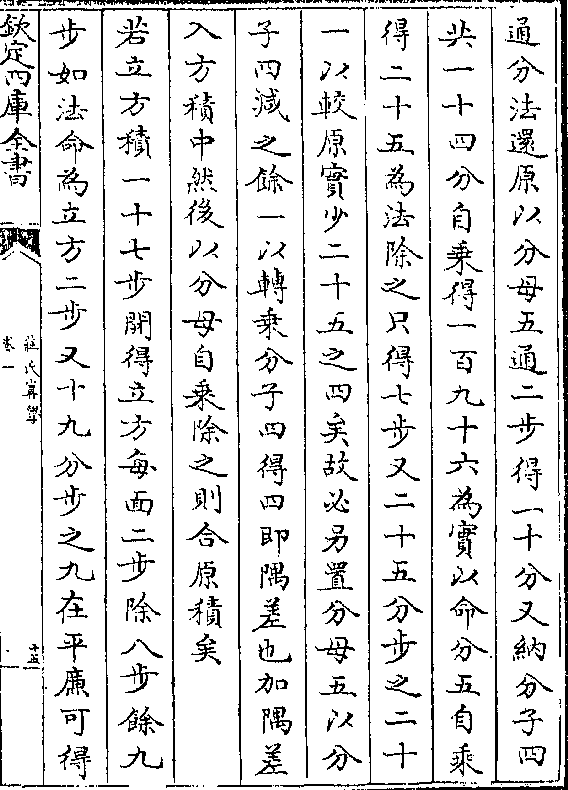 通分法還原以分母五通二步得一十分又納分子四
共一十四分自乘得一百九十六為實以命分五自乘
得二十五為法除之只得七步又二十五分步之二十
一以較原實少二十五之四矣故必另置分母五以分
子四減之餘一以轉乘分子四得四即隅差也加隅差
入方積中然後以分母自乘除之則合原積矣
若立方積一十七步開得立方每面二步除八步餘九
步如法命為立方二步又十九分步之九在平廉可得
欽定四庫全書
莊氏算學
卷一
十五